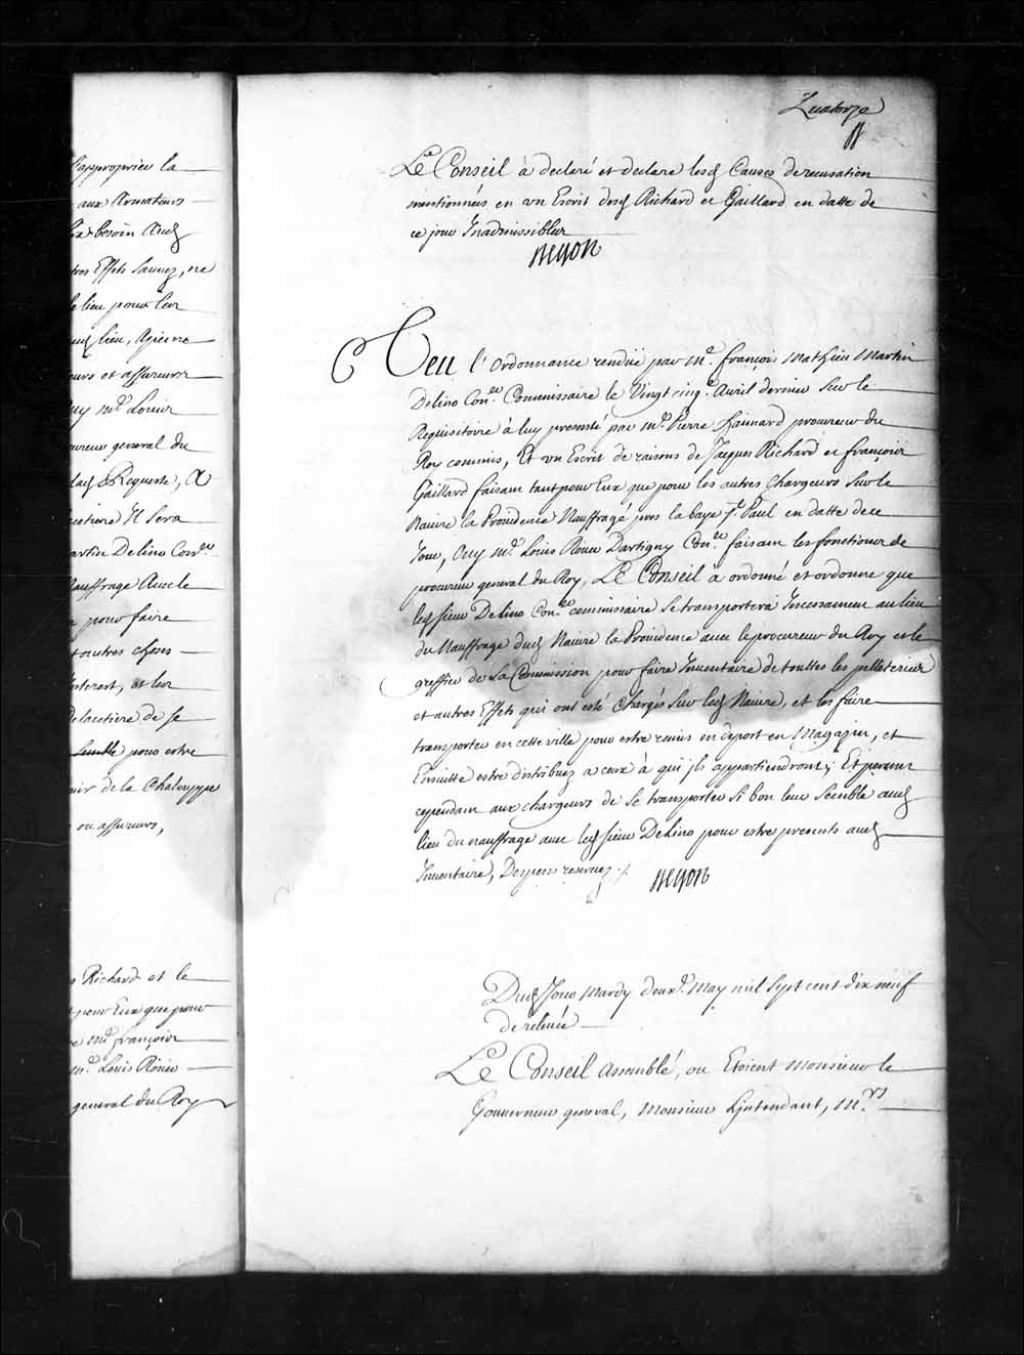 s'approprier la
aux Armateurs
besoin Audt
Effets sauvez, ne
le lieu pour leur
lieu, A peine
et assureurs
Me Louis
procureur general du
Requeste, A
Il sera
Martin Delino Conser
Nauffrage Avec le
pour faire
et autres choses
Interest, et leur
de se
semble pour estre
de la Chaloupe
ou assureurs,
Richard et le
pour Eux que pour
Me françois
Me Louis Roüer
general du Roy
Quatorze
Le Conseil à declaré et declare lesd Causes de recusation
mentionnées en un Escrit desd Richard et Gaillard en datte de
ce jour Inadmissibles
Begon
Veu l'ordonnance rendüe par Me françois Mathieu Martin
Delino Conser Commissaire le Vingt cinqe Avril dernier Sur le
Requisitoire à luy presenté par Me Pierre Haimard procureur du
Roy commis, Et un Escrit de raisons de Jacques Richard et françois
Gaillard faisant tant pour Eux que pour les autres Chargeurs Sur le
Navire la Providence Nauffragé pres la baye St Paul en datte de ce
Jour, Ouy Me Louis Roüer Dartigny Conser faisant les fonctions de
procureur general du Roy, Le Conseil à ordonné et ordonne que
led Sieur Delino Conser commissaire se transportera Incessament au lieu
du Nauffrage dud Navire la Providence avec le procureur du Roy et le
greffier de la Commission pour faire Inventaire de touttes les pelleteries
et autres Effets qui ont esté Chargés Sur led Navire, et les faire
transporter en cette ville pour estre remis en depost en Magazin, et
Ensuitte estre distribuez a ceux à qui ils appartiendront; Et permet
cependant aux chargeurs de se transporter si bon leur semble aud
lieu du nauffrage avec led Sieur Delino pour estre presents aud
Inventaire, Despens reservez ./.
Begon
Dud Jour Mardy deuxe May mil sept cent dix neuf
de relevée
Le Conseil assemblé, ou Etoient Monsieur le
Gouverneur general, Monsieur Lintendant, Mrs